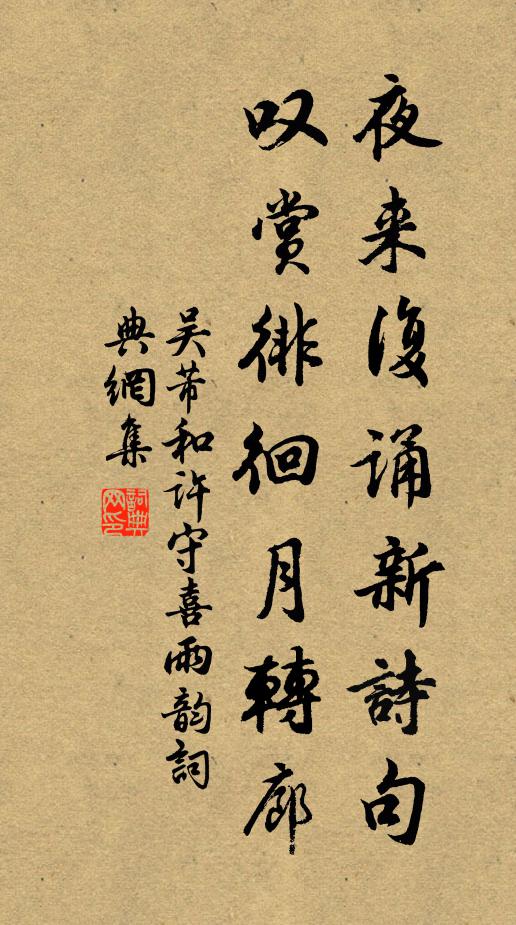 夜来復誦新詩句
叹赏徘徊月轉廊
吴芾和许守喜雨韵詞
典網集
詞典网印